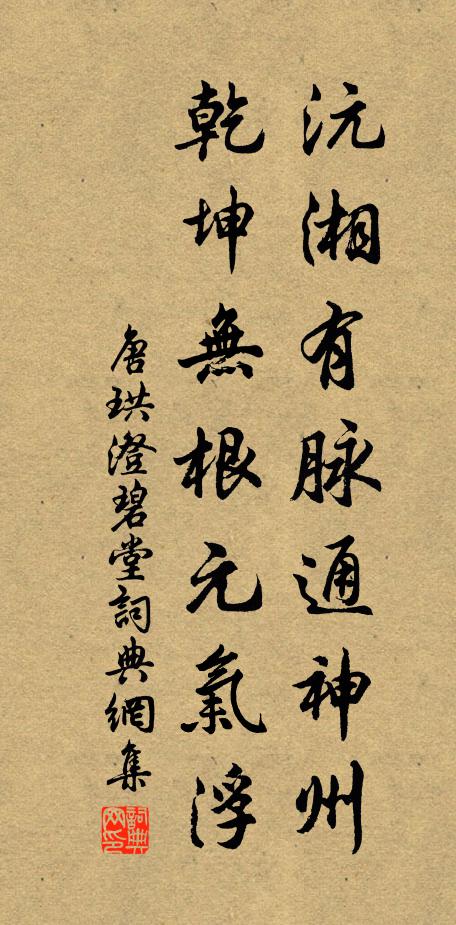 沅湘有脉通神州
乾坤無根元氣浮
唐珙澄碧堂詞典網集
詞典网印